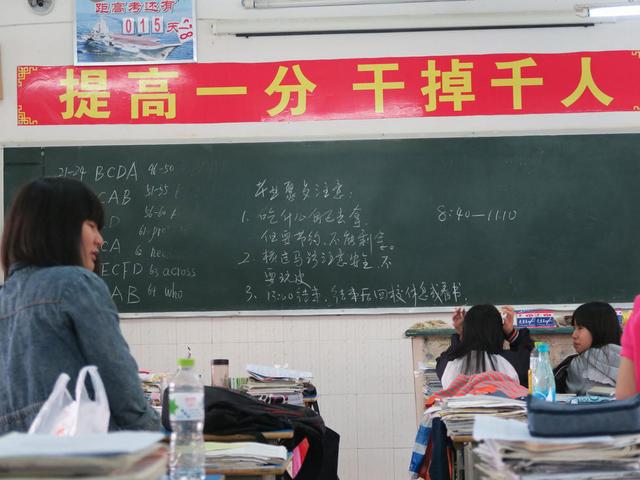 距高考还有
015天
提高一分 干掉千人
21-24 BCDA 46-50
CAB 51-55
D 56-60
CA 62
ECFD 63 across
AB 64 who
毕业聚餐注意:
1、吃什么自己去拿,
但要节约,不能剩
2、横过马路注意安全,不
要玩皮
3、13:00结束,结束后回校休息或看书
8:40—11:10